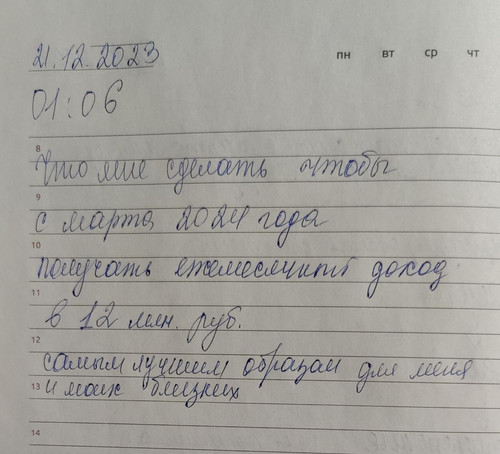 21.12.2023
пн вт ср чт
01:06
8
Что мне сделать чтобы
9
с марта 2024 года
10
получать ежемесячный доход
11
в 12 млн. руб.
12
самым лучшим образом для меня
13 и моих близких
14